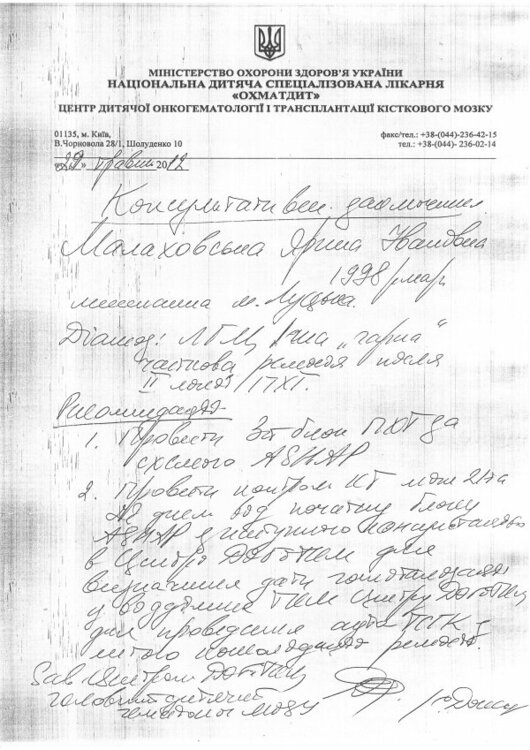 МІНІСТЕРСТВО ОХОРОНИ ЗДОРОВ'Я УКРАЇНИ
НАЦІОНАЛЬНА ДИТЯЧА СПЕЦІАЛІЗОВАНА ЛІКАРНЯ
«ОХМАТДИТ»
ЦЕНТР ДИТЯЧОЇ ОНКОГЕМАТОЛОГІЇ І ТРАНСПЛАНТАЦІЇ КІСТКОВОГО МОЗКУ
01135, м. Київ,
В.Чорновола 28/1, Шолуденко 10
факс/тел.: +38-(044)-236-42-15
тел.: +38-(044)- 236-02-14
«29» травня 2012
Консультативн.
Малаховська Ярина Іванівна
1998 р
мешканка м. Луцька.
Діагноз: ЛГЦ
часткова ремісія після
II лінії ПХТ.
Рекомендації
1. Провести 3й блок ПХТ за
схемою ASHAP
2. Провести контроль КТ між 21 та
28 днем від початку блоку
ASHAP з наступною консультацією
в Центрі для
визначення дати госпіталізації
у відділення ТКМ Центру
для проведення ауто ТСГК з
метою консолідації ремісії.
Зав. Центром
головний дитячий
гематолог МОЗУ